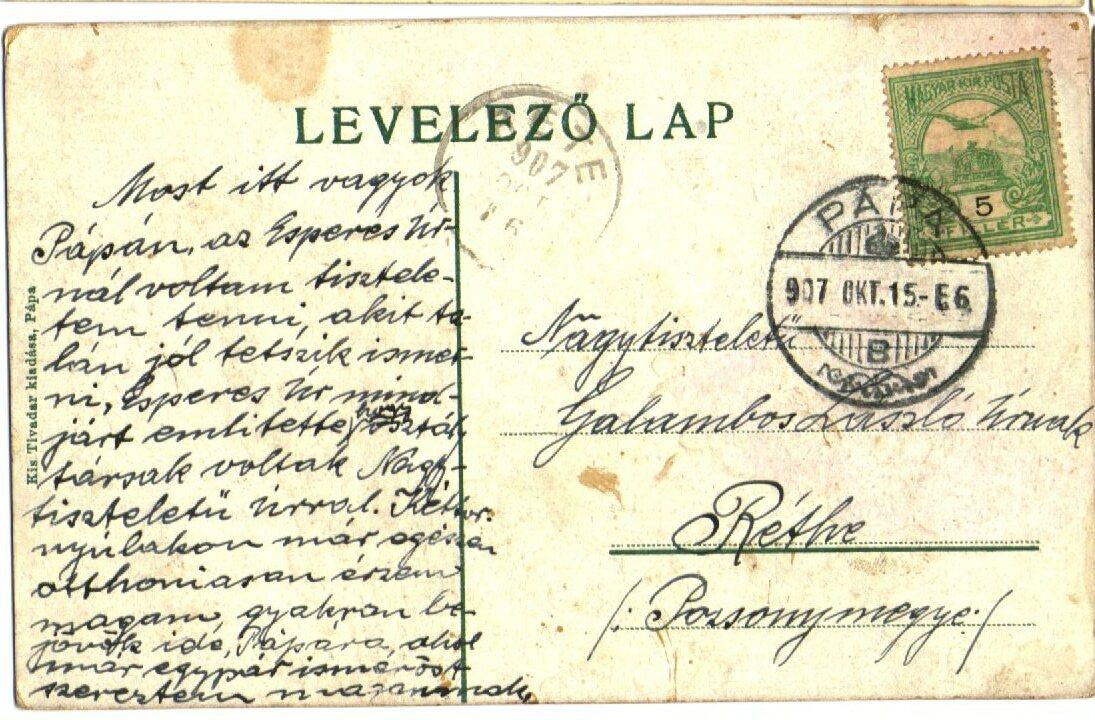 LEVELEZŐ LAP
MAGYAR KIR. POSTA
5
FILLER
PÁPA
907 OKT. 15 - E6
B
907
16
Most itt vagyok
Pápán, az Esperes Úr-
nál voltam tisztele-
tem tenni, akit ta-
lán jól tetszik ismer-
ni, Esperes Úr mind-
járt említette, hogy osztály
társak voltak Nagy-
tiszteletű Úrral.
nyúlakon már egészen
otthoniasan érzem
magam, gyakran be
jövök ide, Pápára, ahol
már egypár ismerőst
szereztem magamnak
Kis Tivadar kiadása, Pápa
Nagytiszteletű
Galambos László Úrnak
Réthe
/: Pozsonymegye :/